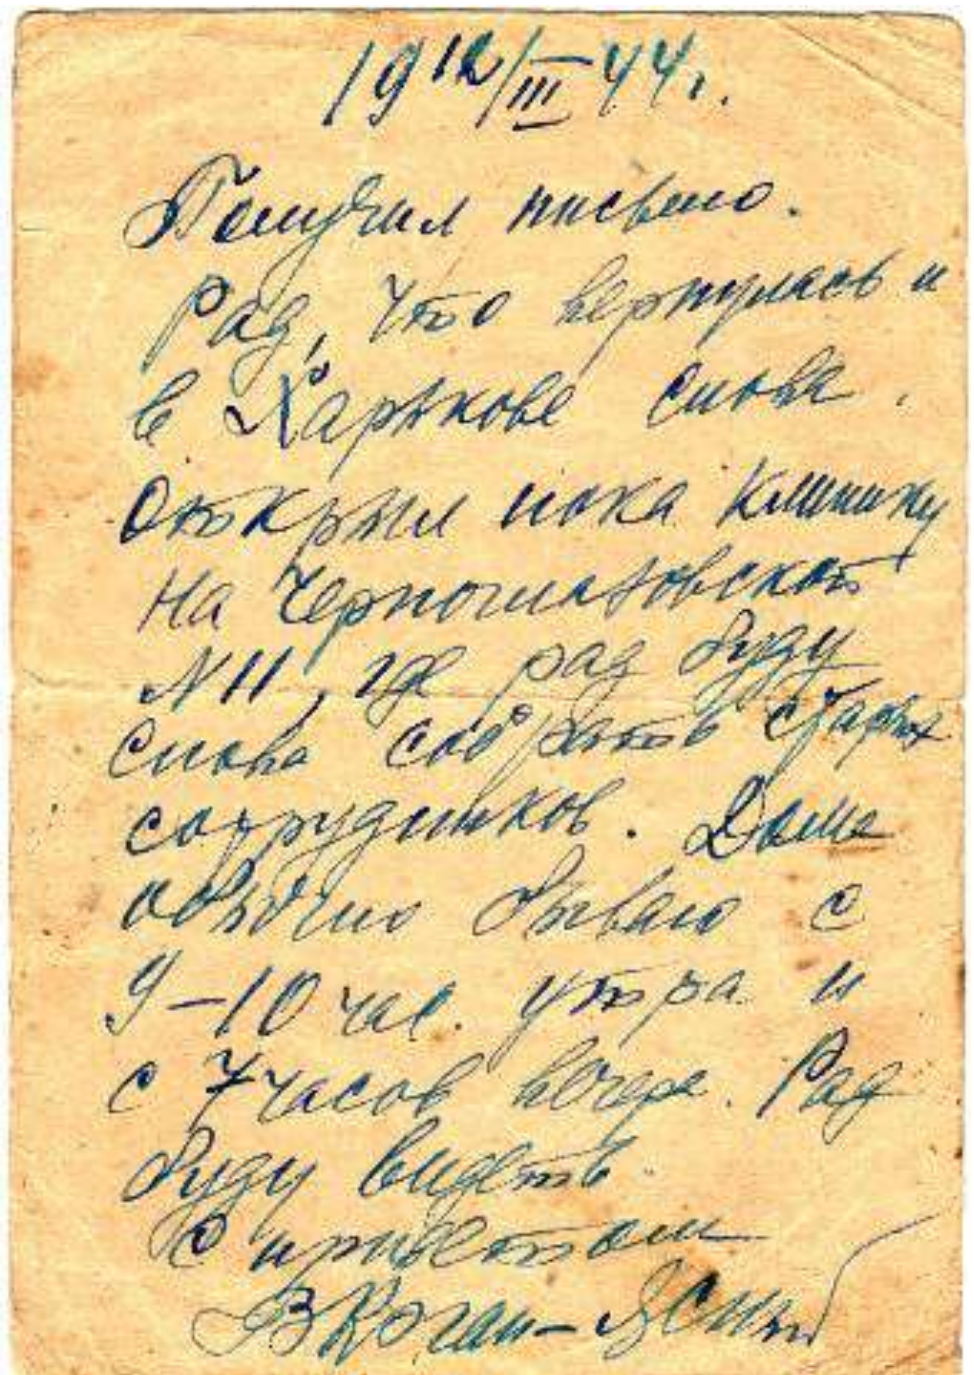 19 12/III 44 г.
Получил письмо.
Рад, что вернулась и
в Харькове снова.
Открыл пока клинику
на Черноглазовской
№ 11, где рад буду
снова собрать старых
сотрудников. Дома
обычно бываю с
9–10 час. утра и
с 7 часов вечера. Рад
буду видеть.
С приветом
В Коган-Ясный